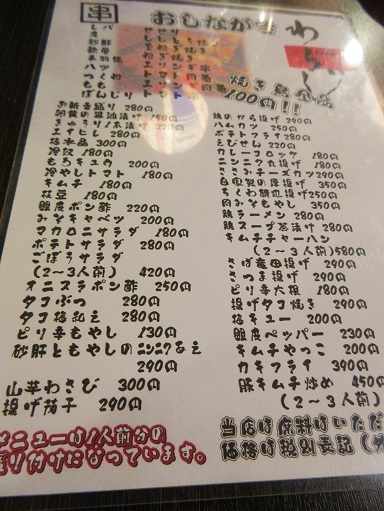 串
おしながき
わらじ
焼き鳥全品
100円!!
レバ
砂肝
もも
ハツ
つくね
ぼんじり
お新香盛り 280円
エイヒレ 280円
梅水晶 300円
冷奴 180円
もろきゅう 200円
冷やしトマト 180円
キムチ 180円
枝豆 180円
銀皮ポン酢 220円
みそキャベツ 200円
マカロニサラダ 180円
ポテトサラダ 280円
ごぼうサラダ
(2〜3人前) 420円
オニスラポン酢 250円
タコぶつ 280円
タコ梅和え 280円
ピリ辛もやし 130円
砂肝ともやしのニンニクあえ
290円
山芋わさび 300円
揚げ茄子 290円
メニューは1人前分の
盛り付けになっています。
鶏のから揚げ 290円
ハムカツ 250円
ポテトフライ 280円
えびせん 220円
カレーコロッケ 180円
ニンニク丸揚げ 180円
ささみチーズカツ 290円
自家製の厚揚げ 350円
ちくわ磯辺揚げ 250円
肉みそもやし 350円
鶏ラーメン 280円
鶏スープ茶漬け 280円
キムチチャーハン
(2〜3人前) 580円
さば竜田揚げ 290円
さつま揚げ 290円
ピリ辛大根 180円
揚げタコ焼き 290円
梅キュー 200円
銀皮ペッパー 230円
キムチやっこ 200円
カキフライ 390円
豚キムチ炒め 450円
(2〜3人前)
当店は席料はいただ
価格は税別表記